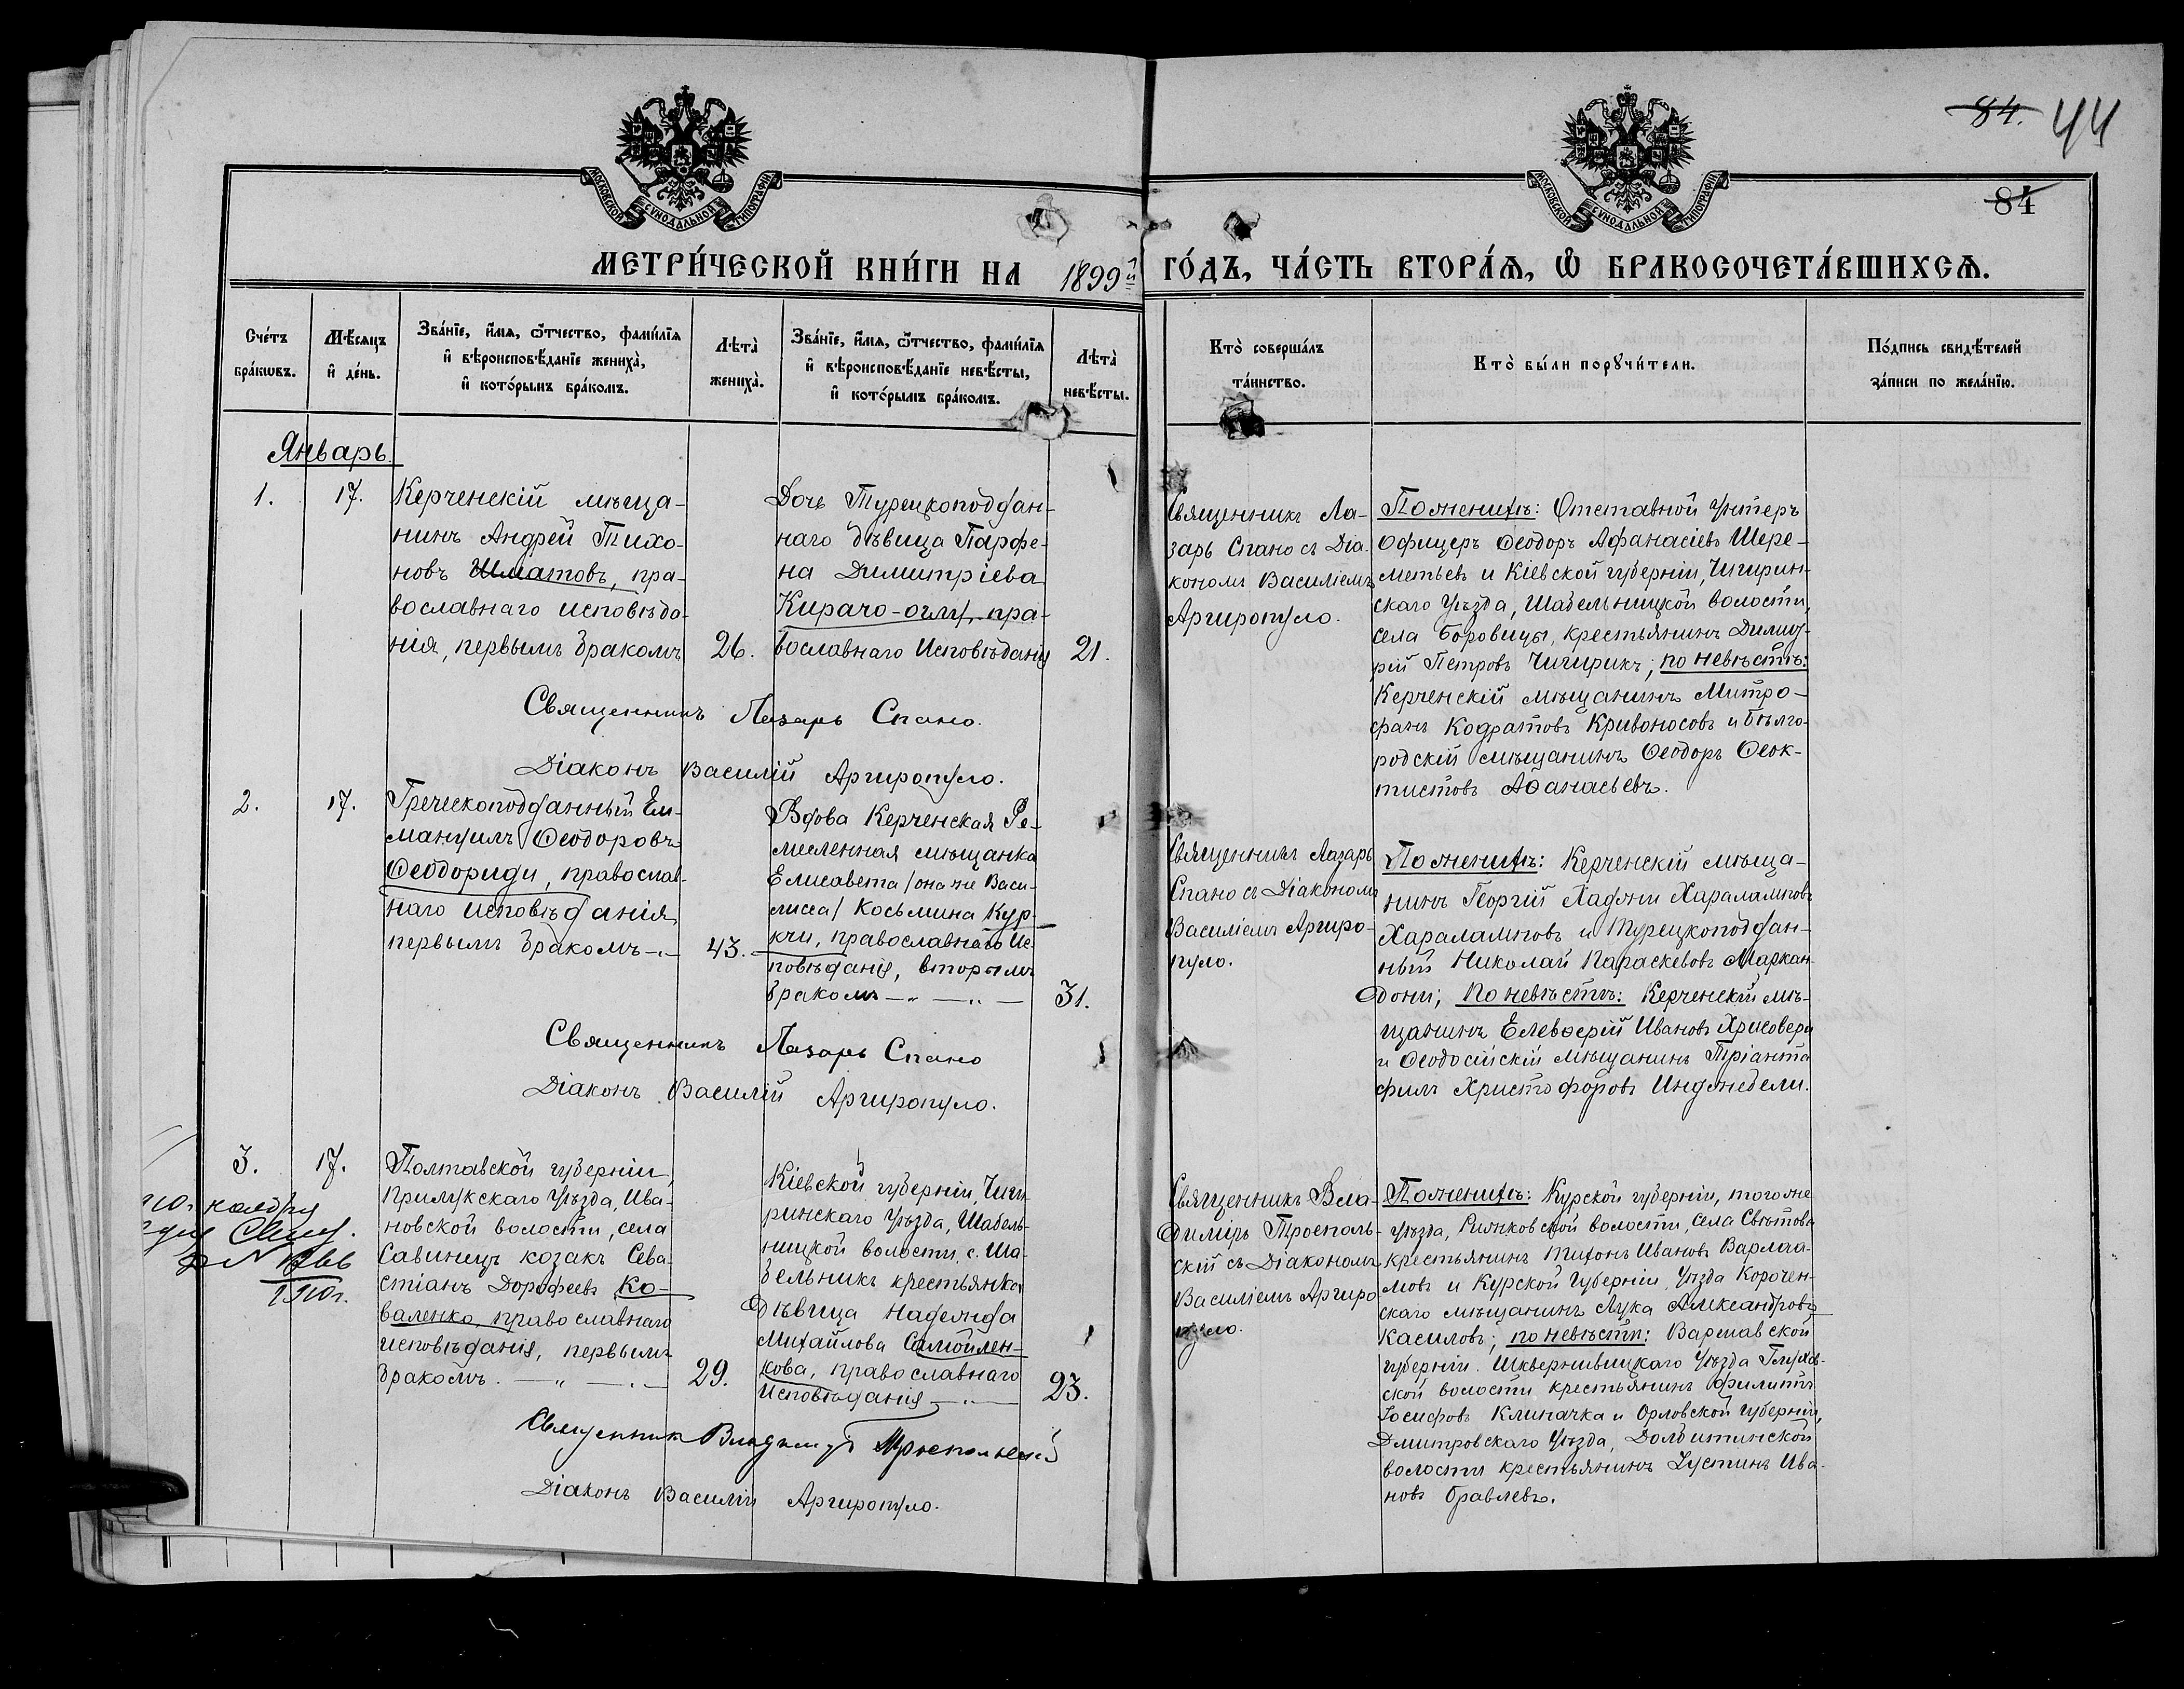 84. 44
МОСКОВСКОЙ СѴНОДАЛЬНОЙ ТИПОГРАФІИ
МОСКОВСКОЙ СѴНОДАЛЬНОЙ ТИПОГРАФІИ
84
МЕТРИ́ЧЕСКОЙ КНИ́ГИ НА 1899й ГО́ДЪ, ЧА́СТЬ ВТОРА́Ѧ, Ѽ БРАКОСОЧЕТА́ВШИХСѦ.
Сче́тъ бра́кѡвъ.
Мѣ́сяцъ и҆ де́нь.
Зва́нїе, и҆́мѧ, ѻ҆́тчество, фами́лїѧ
и҆ вѣроисповѣ́данїе жениха̀,
и҆ кото́рымъ бра́комъ.
Лѣта̀ жениха̀.
Зва́нїе, и҆́мѧ, ѻ҆́тчество, фами́лїѧ
и҆ вѣроисповѣ́данїе невѣ́сты,
и҆ кото́рымъ бра́комъ.
Лѣта̀ невѣ́сты.
Кто̀ соверша́лъ
та́инство.
Кто̀ бы́ли порꙋчи́тели.
По́дпись свидѣ́телей
за́писи по жела́нїю.
Январь.
1. 17.
Керченскій мѣща-
нинъ Андрей Тихо-
новъ Шматовъ, пра-
вославнаго исповѣда-
нія, первымъ бракомъ
26.
Дочь Турецкоподдан-
наго дѣвица Парфе-
на Димитріева
Кирачо-оглу, пра-
вославнаго Исповѣданія
21.
Священникъ Лазарь Спано.
Діаконъ Василій Аргиропуло.
Священникъ Ла-
зарь Спано съ Діа-
кономъ Василіемъ
Аргиропуло.
По женихѣ: Отставной Унтеръ
Офицеръ Ѳеодоръ Афанасіевъ Шере-
метьевъ и Кіевской губерніи, Чигирин-
скаго Уѣзда, Шабельницкой волости,
села Боровицы, крестьянинъ Димит-
рій Петровъ Чигирикъ; по невѣстѣ:
Керченскій мѣщанинъ Митро-
фанъ Кодратовъ Кривоносовъ и Бѣлго-
родскій мѣщанинъ Ѳеодоръ Ѳеок-
тистовъ Аѳанасьевъ.
2. 17.
Греческоподданный Ем-
мануилъ Ѳеодоровъ
Ѳеодориди, православ-
наго исповѣданія,
первымъ бракомъ
43.
Вдова Керченская Ре-
месленная мѣщанка
Елисавета /она же Васи-
лисса/ Косьмина Кур-
кчи, православнаго Ис-
повѣданія, вторымъ
бракомъ
31.
Священникъ Лазарь Спано
Діаконъ Василій Аргиропуло.
Священникъ Лазарь
Спано съ Діакономъ
Василіемъ Аргиро-
пуло.
По женихѣ: Керченскій мѣща-
нинъ Георгій Хаджи Харалампов
Харалампов и Турецкоподдан-
ный Николай Параскевовъ Маркан-
дони; по невѣстѣ: Керченскій мѣ-
щанинъ Елевѳерій Ивановъ Хрисовери
и Ѳеодосійскій мѣщанинъ Тріанта
филъ Христофоровъ Инджебели.
3. 17.
Полтавской губерніи,
Прилукскаго Уѣзда, Ива-
новской волости, села
Савинецъ козакъ Сева-
стіанъ Дорофеевъ Ко-
валенко, православнаго
исповѣданія, первымъ
бракомъ.
29.
Кіевской губерніи, Чиги-
ринскаго Уѣзда, Шабель-
ницкой волости, с. Ша-
бельникъ крестьянка
дѣвица Надежда
Михайлова Самойлен-
кова, православнаго
Исповѣданія
23.
1910г.
Священникъ Владимиръ Троепольскій
Діаконъ Василій Аргиропуло.
Священникъ Вла-
димиръ Троеполь-
скій съ Діакономъ
Василіемъ Аргиро
пуло.
По женихѣ: Курской губерніи, того же
уѣзда, Рыжковской волости, села Свѣтова
крестьянинъ Тихонъ Ивановъ Варлаа-
мовъ и Курской Губерніи, Уѣзда Корочен-
скаго мѣщанинъ Лука Александровъ
Касиловъ; по невѣстѣ: Варшавской
губерніи. Шквернивицкаго Уѣзда Глухов-
ской волости крестьянинъ Филиппъ
Іосифовъ Клипачка и Орловской губерніи,
Дмитровскаго Уѣзда, Долбитинской
волости крестьянинъ Іустинъ Ива-
новъ Бравлевъ.